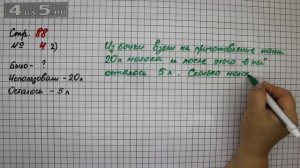 4 5.ru
Стр. 88
№ 4 2)
Было - ?
Использовали - 20 л
Осталось - 5 л
Из бочки взяли на приготовление каши
20 л молока и после этого в ней
осталось 5 л. Сколько молок